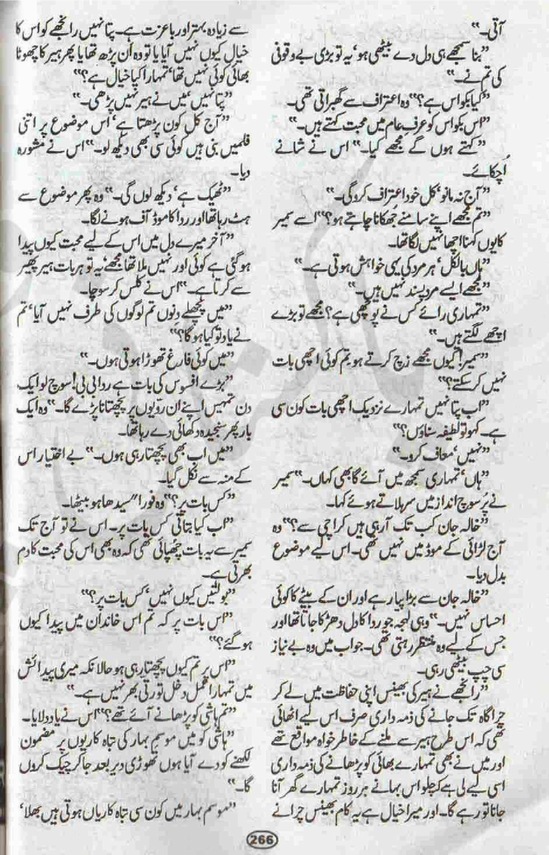 آتی۔"
"بنا سمجھے ہی دل دے بیٹھی ہو' یہ تو بڑی بے وقوفی
کی تم نے۔"
"کیا بکواس ہے؟" وہ اعتراف سے گھبراتی تھی۔
"اس بکواس کو عرف عام میں محبت کہتے ہیں۔"
"کہتے ہوں گے مجھے کیا۔" اس نے شانے
اُچکائے۔
"آج نہ مانو' کل خود اعتراف کرو گی۔"
"تم مجھے اپنے سامنے جھکانا چاہتے ہو؟" اسے سمیر
کا یوں کہنا اچھا نہیں لگا تھا۔
"ہاں بالکل' ہر مرد کی یہی خواہش ہوتی ہے۔"
"مجھے ایسے مرد پسند نہیں ہیں۔"
"تمہاری رائے کس نے پوچھی ہے؟ مجھے تو بڑے
اچھے لگتے ہیں۔"
"سمیر! کیوں مجھے زچ کرتے ہو' تم کوئی اچھی بات
نہیں کر سکتے؟"
"اب پتا نہیں تمہارے نزدیک اچھی بات کون سی
ہے۔ کہو تو لطیفہ سناؤں؟"
"نہیں' معاف کرو۔"
"ہاں' تمہاری سمجھ میں آئے گا بھی کہاں۔" سمیر
نے پُرسوچ انداز میں سر ہلاتے ہوئے کہا۔
"خالہ جان کب تک آ رہی ہیں کراچی سے؟" وہ
آج لڑائی کے موڈ میں نہیں تھی۔ اس لیے موضوع
بدل دیا۔
"خالہ جان سے بڑا پیار ہے اور ان کے بیٹے کا کوئی
احساس نہیں۔" وہی لہجہ جو ردا کا دل دھڑکا جاتا تھا اور
جس کے لیے وہ منتظر رہتی تھی۔ جواب میں وہ بے نیاز
سی چپ بیٹھی رہی۔
"رانجھے نے ہیر کی بھینس اپنی حفاظت میں لے کر
چراگاہ تک جانے کی ذمہ داری صرف اس لیے اٹھائی
تھی کہ اس طرح ہیر سے ملنے کے خاطر خواہ مواقع تھے
اور میں نے بھی تمہارے بھائی کو پڑھانے کی ذمہ داری
اسی لیے لی ہے کہ چلو اس بہانے ہر روز تمہارے گھر آنا
جانا تو رہے گا۔ اور میرا خیال ہے یہ کام بھینس چرانے
سے زیادہ بہتر اور باعزت ہے۔ پتا نہیں رانجھے کو اس کا
خیال کیوں نہیں آیا یا تو وہ ان پڑھ تھا یا پھر ہیر کا چھوٹا
بھائی کوئی نہیں تھا' تمہارا کیا خیال ہے؟"
"پتا نہیں' میں نے ہیر نہیں پڑھی۔"
"آج کل کون پڑھتا ہے' اس موضوع پر اتنی
فلمیں بنی ہیں کوئی سی بھی دیکھ لو۔" اس نے مشورہ
دیا۔
"ٹھیک ہے' دیکھ لوں گی۔" وہ پھر موضوع سے
ہٹ رہا تھا اور ردا کا موڈ آف ہونے لگا۔
"آخر میرے دل میں اس کے لیے محبت کیوں پیدا
ہو گئی ہے کوئی اور نہیں ملا تھا مجھے' یہ تو ہر بات ہیر پھیر
سے کرتا ہے۔" اس نے کلس کر سوچا۔
"میں پچھلے دنوں تم لوگوں کی طرف نہیں آیا' تم
نے یاد تو کیا ہو گا؟"
"میں کوئی فارغ تھوڑا ہوتی ہوں۔"
"بڑے افسوس کی بات ہے ردا بی بی! سوچ لو ایک
دن تمہیں اپنے ان رویوں پر پچھتانا پڑے گا۔" وہ ایک
بار پھر سنجیدہ دکھائی دے رہا تھا۔
"میں اب بھی پچھتا رہی ہوں۔" بے اختیار اس
کے منہ سے نکل گیا۔
"کس بات پر؟" وہ فوراً" سیدھا ہو بیٹھا۔
"اب کیا بتاتی کس بات پر۔ اس نے تو آج تک
سمیر سے یہ بات چھپائی تھی کہ وہ بھی اس کی محبت کا دم
بھرتی ہے۔
"بولتیں کیوں نہیں' کس بات پر؟"
"اس بات پر کہ تم اس خاندان میں پیدا کیوں
ہو گئے؟"
"اس پر تم کیوں پچھتا رہی ہو حالانکہ میری پیدائش
میں تمہارا عمل دخل تو رتی بھر نہیں ہے۔"
"تم ہاشی کو پڑھانے آئے تھے؟" اس نے یاد دلایا۔
"ہاشی کو میں موسم بہار کی تباہ کاریوں پر مضمون
لکھنے کو دے آیا ہوں تھوڑی دیر بعد جا کر چیک کروں
گا۔"
"موسم بہار میں کون سی تباہ کاریاں ہوتی ہیں بھلا'
266